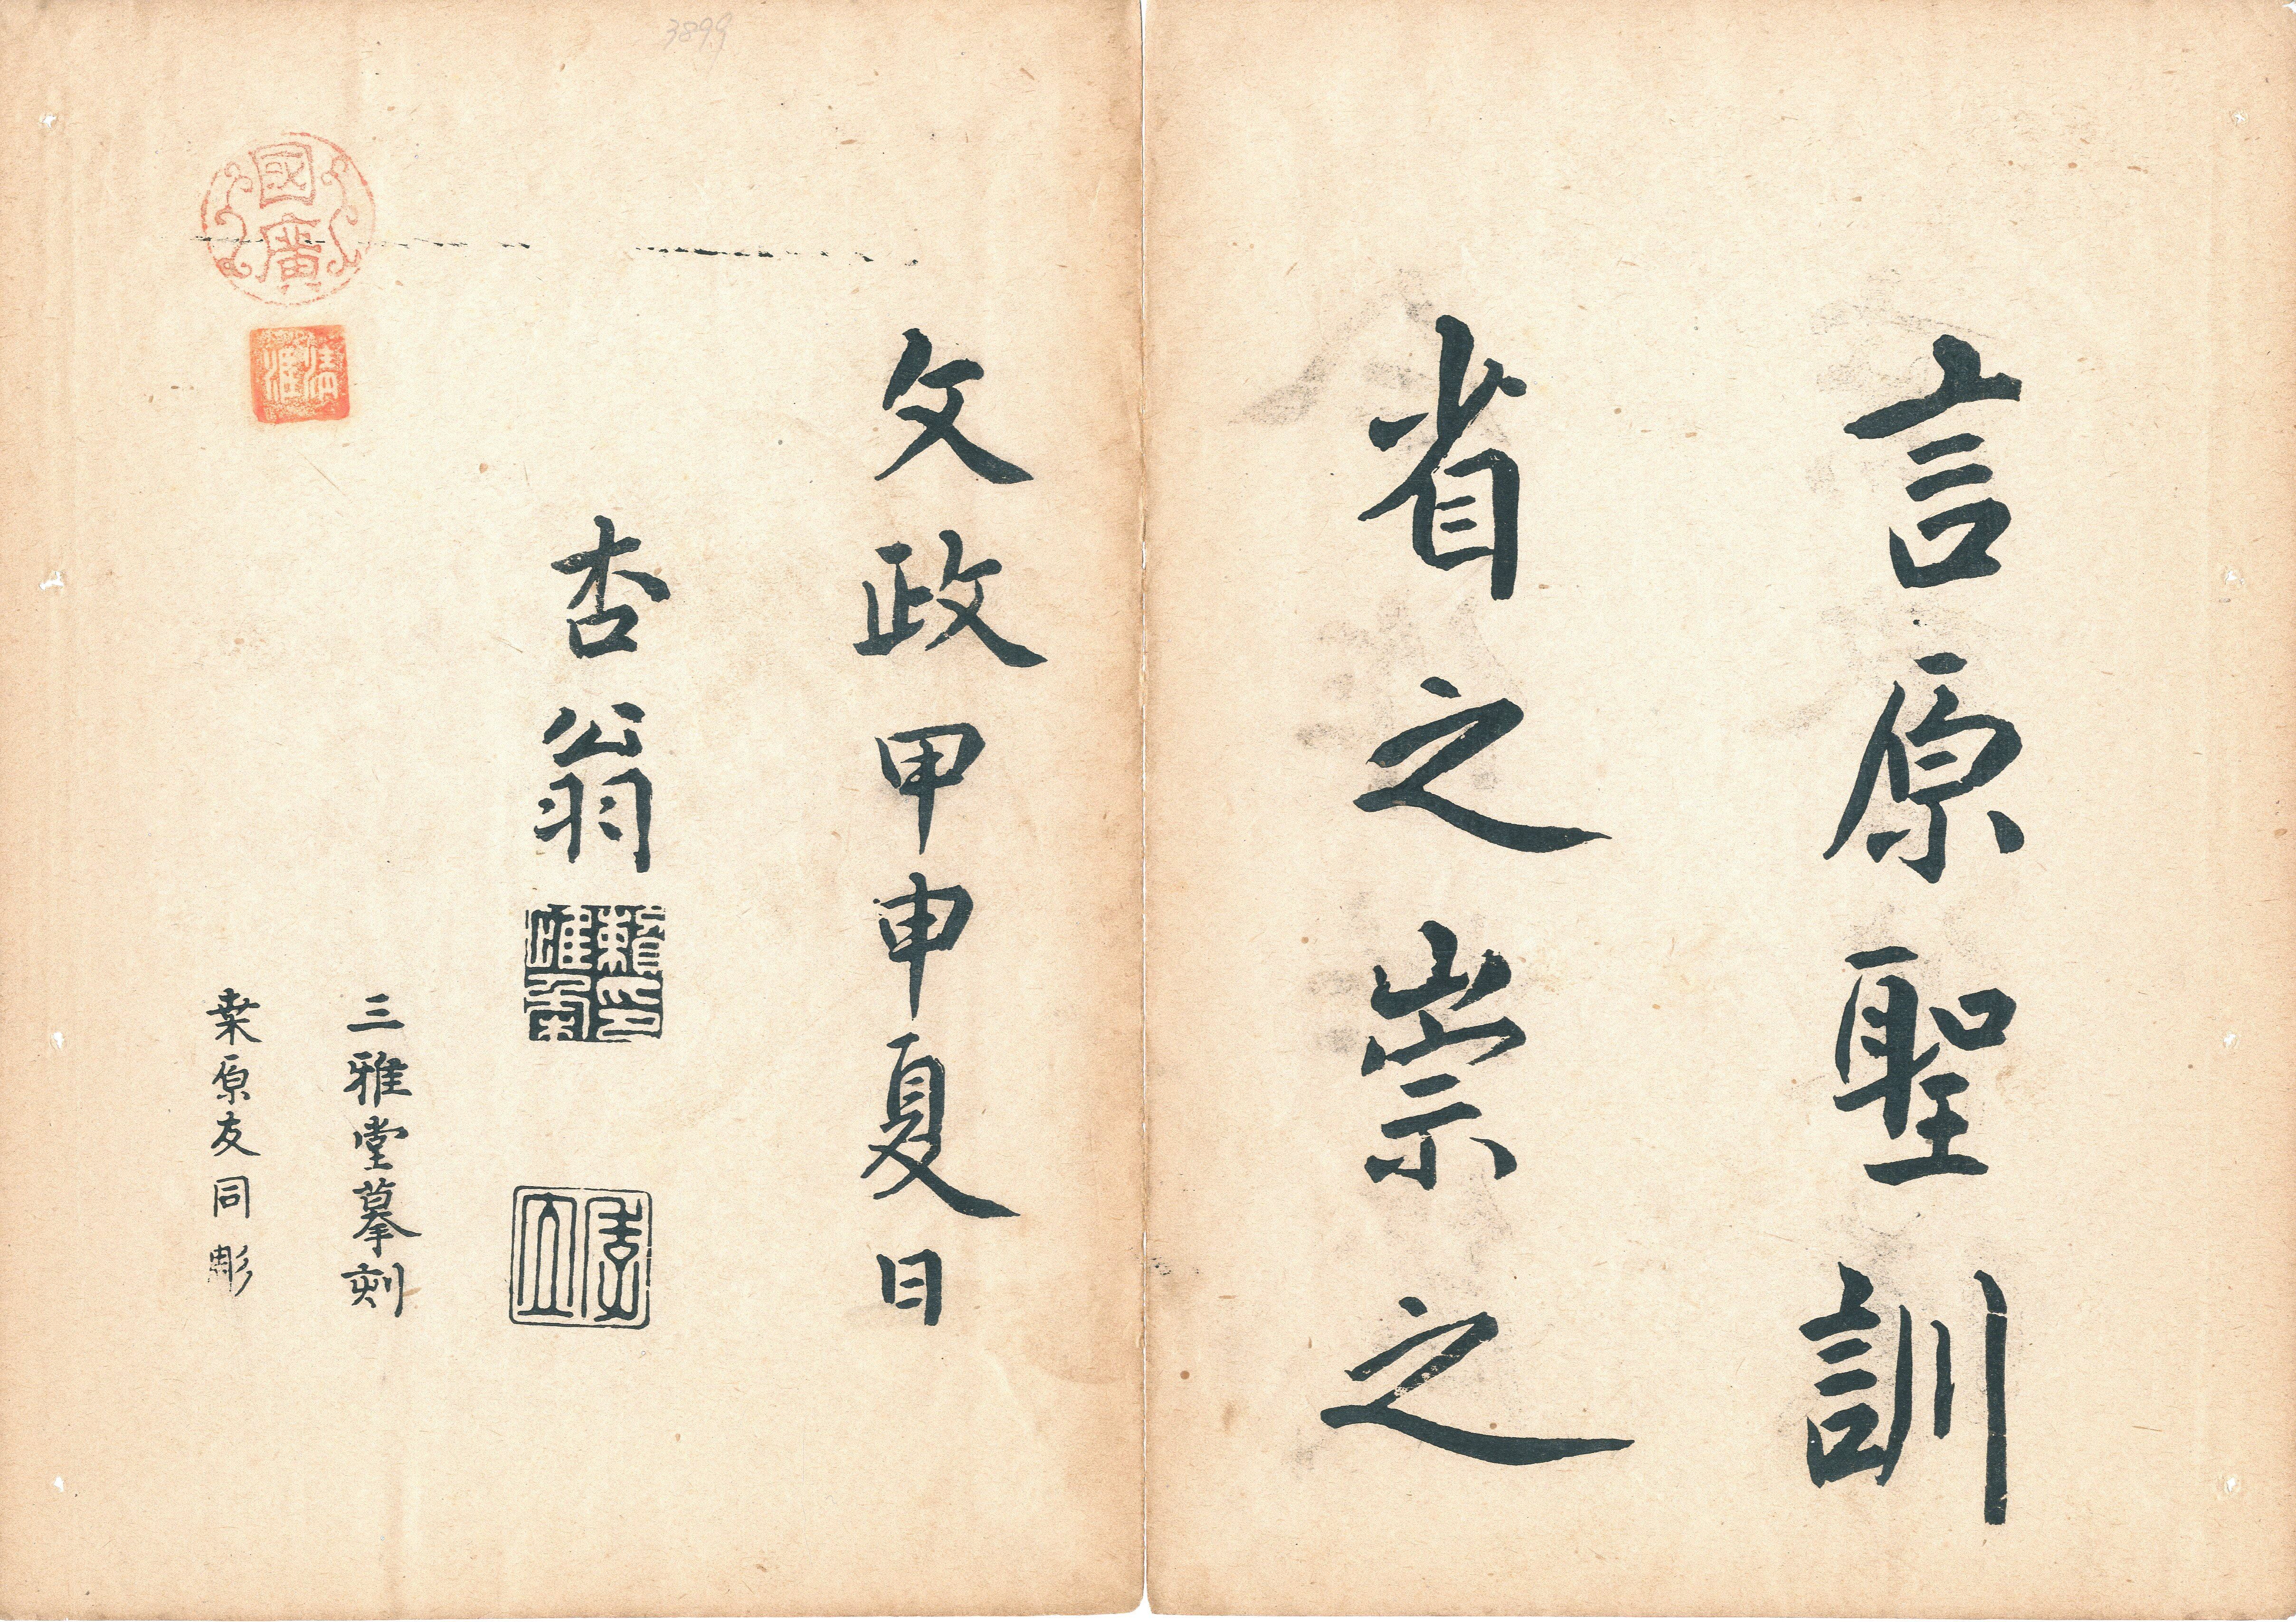 言原聖訓
省之崇之
文政甲申夏日
杏翁
頼惟柔印
三雅堂摹刻
桒原友同彫
國廣
3899